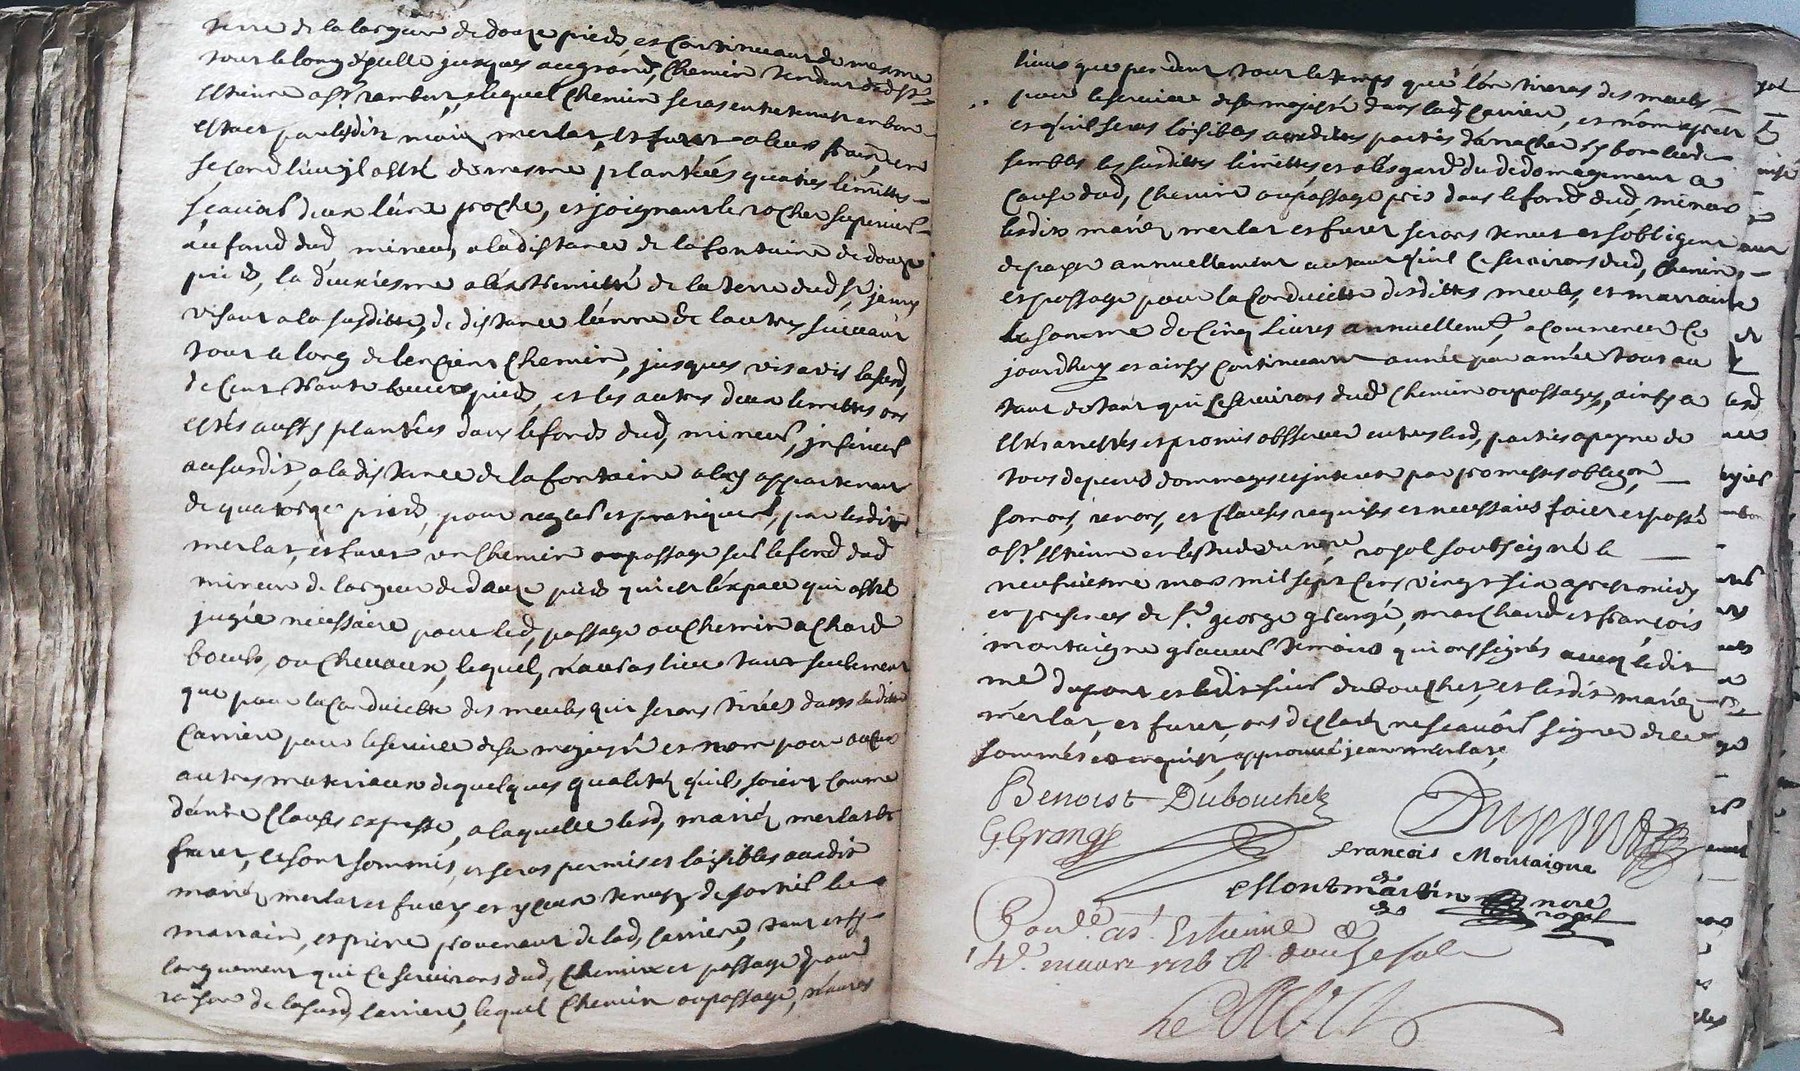 terre de la largeur de douze pieds, et continuant de mesme
tout le long d'icelle jusques au grand Chemin tendant dud St
Estienne a St rambert, lequel Chemin seras entretenus en bon
estact par lesdits mariés merlat, et furet a leur frais, en
second lieu jl a esté de mesme plantées quatres limittes
scavoir deux l'une proche, et joignant le rocher superieur
au fond dud, mineur, a la distance de la fontaine de douze
pieds, la deuxiesme a l'extremitté de la terre dud Sr james
visant a la susditte, de distance l'unne de lautres suivant
tout le long de l'encient Chemin, jusques vis a vis lasusd,
de Cent trante pieds, et les autres deux limittes ont
estés aussy plantées dans le fonds dud, mineur, jnferieur
au susdit, a la distance de la fontaine a luy appartenant
de quatorze pieds, pour regler et pratiquer, par lesdits
merlat, et furet un Chemin ou passage sur le fond dud
mineur de largeur de douze pieds qui est l'espace qui a esté
jugée necessaire pour led, passage ou Chemin a Chard
boeufs, ou Chevaux, lequel, n'auras lieu tant seulement
que pour la Conduictte des meules qui seront tirées dans laditte
Carriere pour le service de sa majesté et non pour autres
autres materiaux de quelques qualités qu'ils soient Comme
dente Clauses expresse, a laquelle lesd, mariés merlat et
furet, se sont sommis, et seras permis et loisibles ausdit
mariés merlat et furet, et yceux tenus de sortir le
marrain, et pierre provenant de lad, Carriere, tant et sy
longuement qui se serviront dud, Chemin et passage pour
raison de lasusd, Carriere, lequel Chemin ou passage, n'auras
lieux que pendant tout le temps que l'on tireras des meules
pour le service de sa majesté dans lad Carriere, et non apres
et qu'il seras loisibles ausdittes partiés d'arracher sy bon leur
sembles les susdittes limittes et a l'esgard du dedomagement a
Cause dud, Chemin ou passage pris dans le fond dud, mineur
lesdits mariés merlat et furet seront tenus et s'obligent
de payer annuellement autant qu'il se serviront dud, Chemin,
et passage pour la Conduictte desdittes meules, et marrain
la somme de Cinq livres annuellemt, a Commencer Ce
jourdhuy et ainsy Continuant année par année tout au
tant de tant qui se serviront dud Chemin ou passages, ainsy a
esté arrettés et promis observer entre lesd, parties a peyne de
tous depens dommages et interest par promesses obligon,
somons, renons, et Clauses requises et necessaires fait et passé
a St Estienne en lestude du nore royal soubsigné le
neufviesme mars mil sept Cens vingt six apres midy
et presences de Sr george grangé, marchand et François
montaigne graveur temoins qui ont signés avec ledit
me dupont et ledit sieur dubouchet, et lesdits mariés
merlat, et furet, ont declaré ne scavoir signer de ce
sommés et enquis, approuvé jean merlat,
Benoist Dubouchet
Dupont
G Grange
francois Montaigne
Montmartin nore
royal
Conle a St Estienne le
14e mars 1726 R douze sols